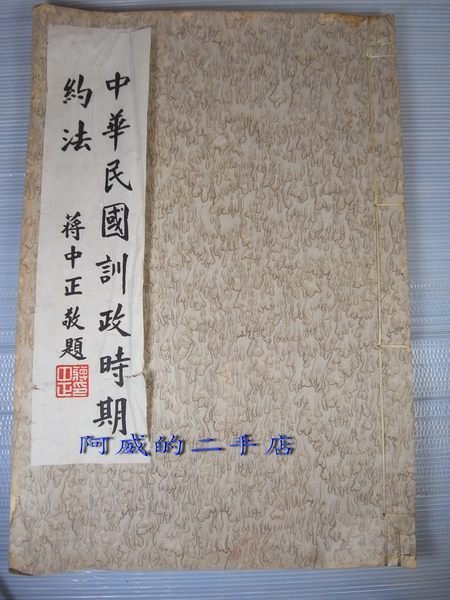 中華民國訓政時期
約法
蔣中正敬題
阿威的二手店